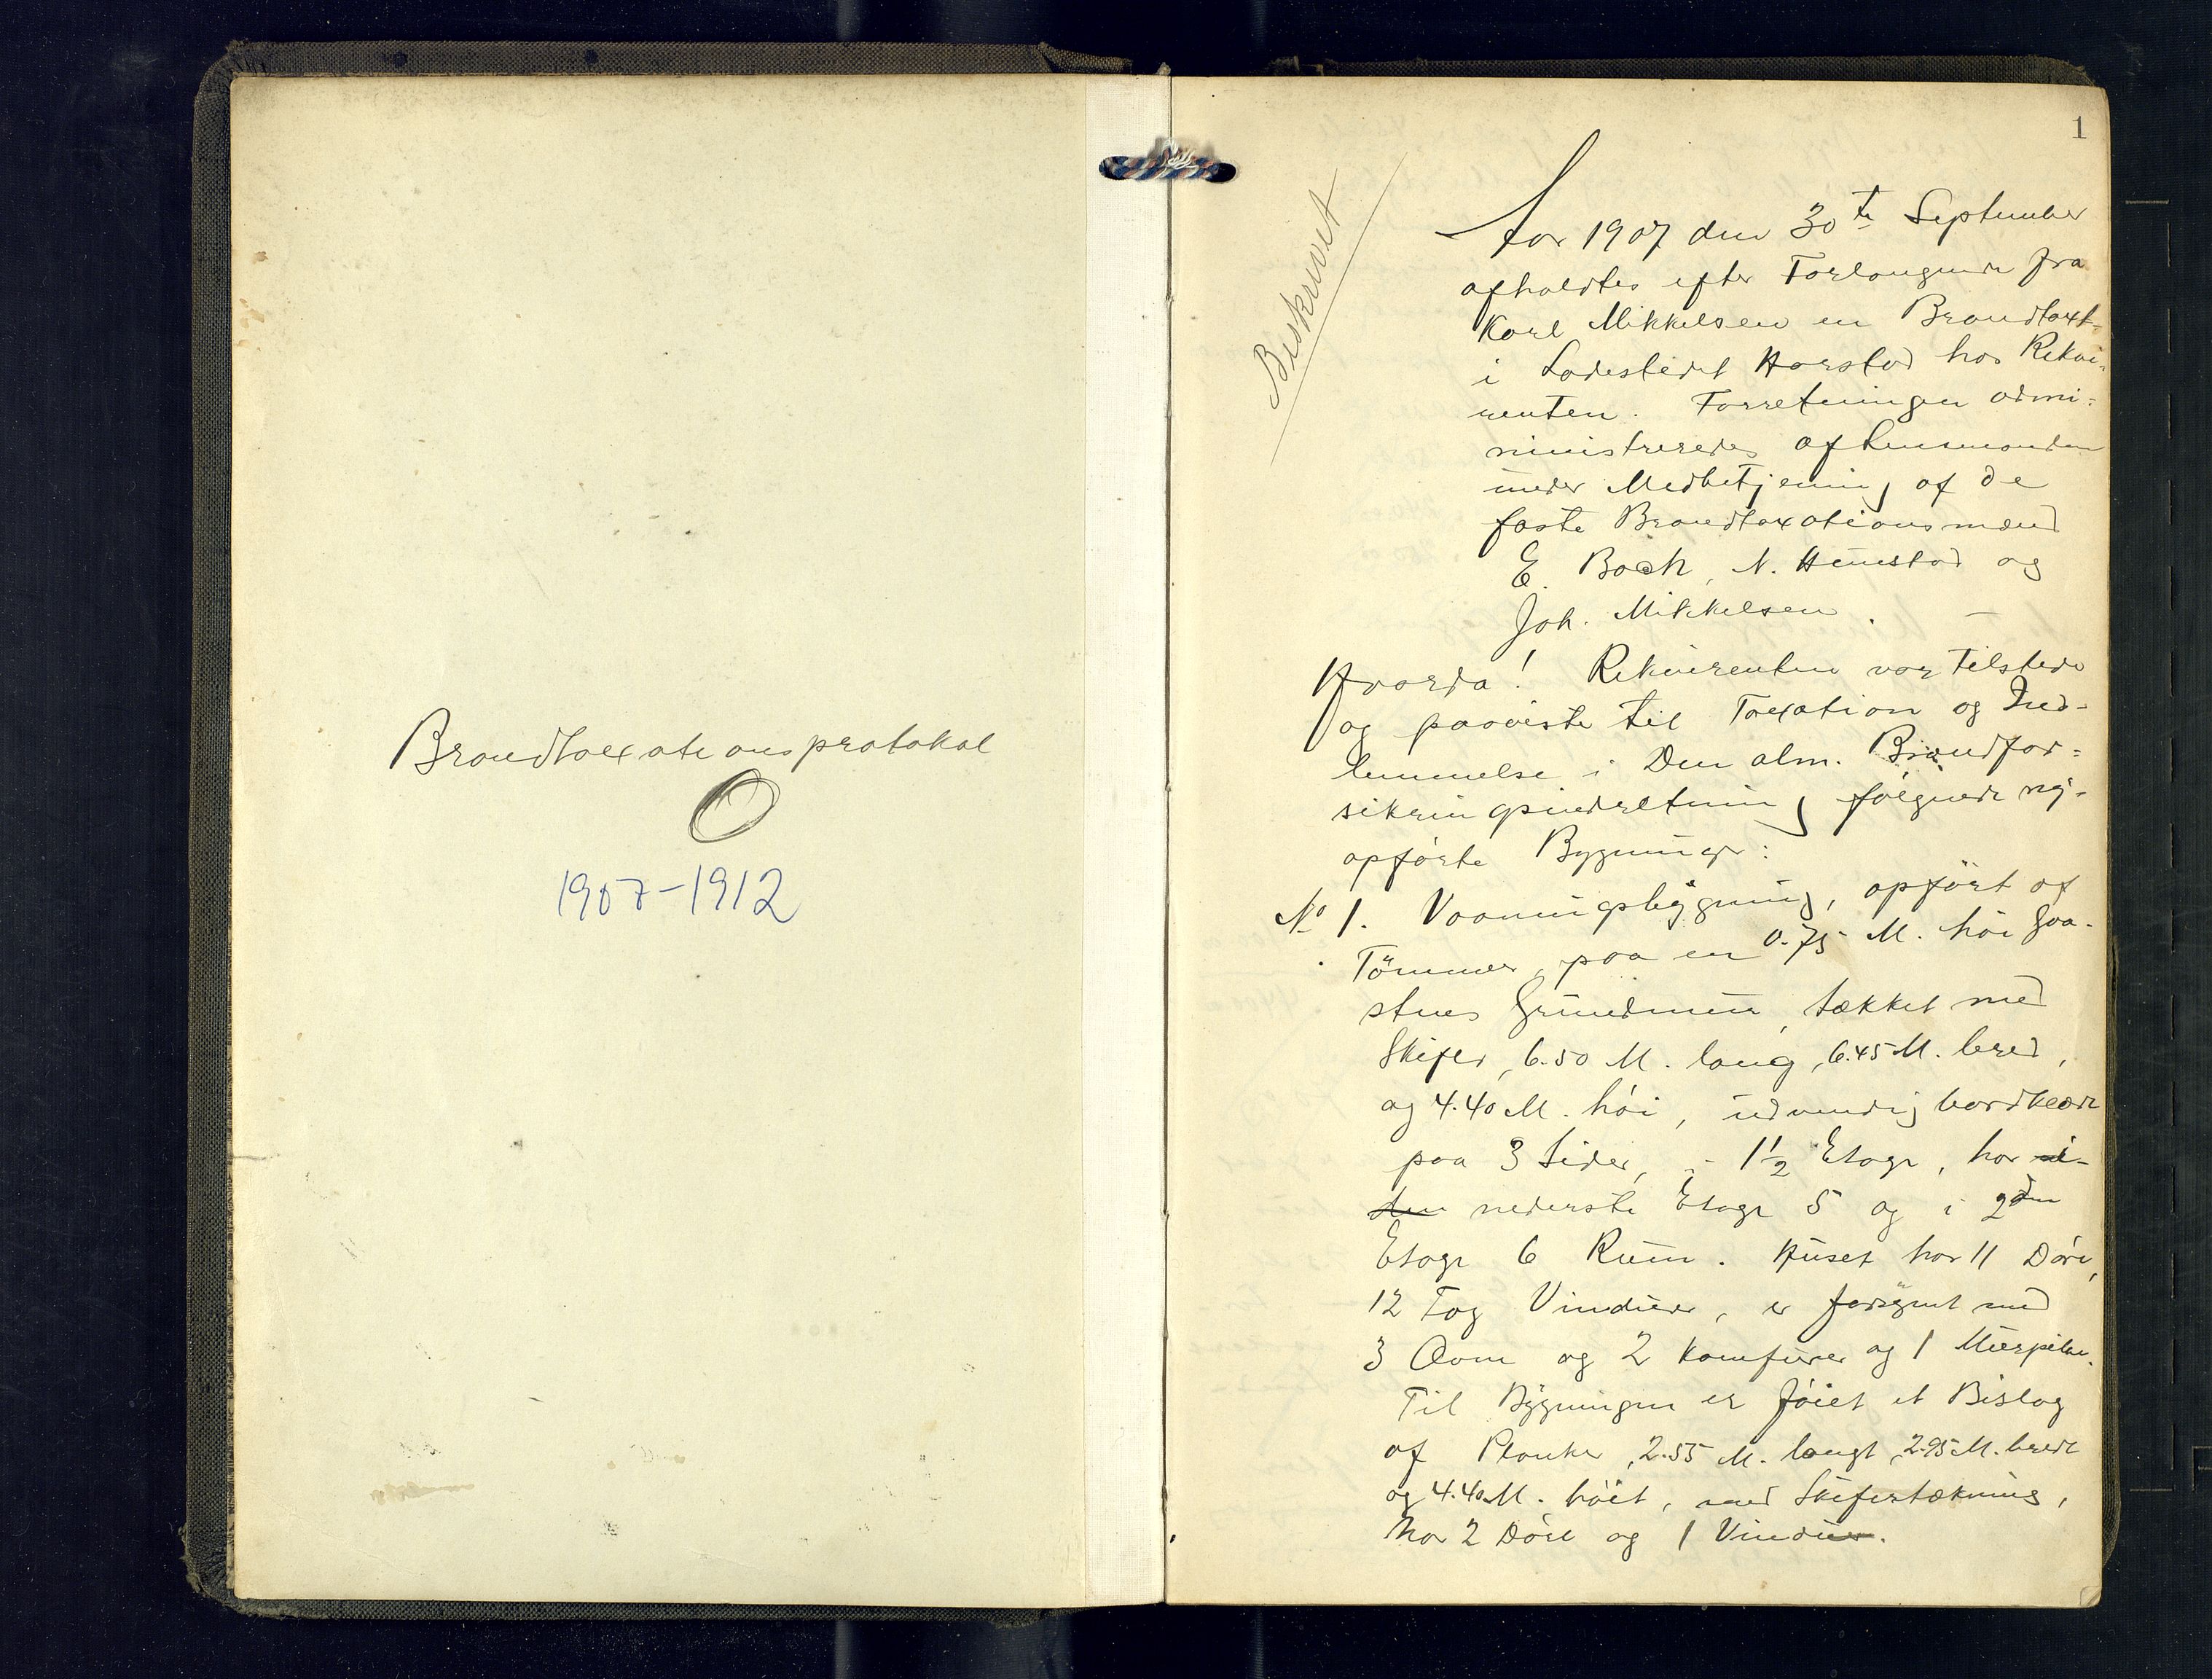 Brandtaxationsprotokol
1907-1912
1
Beskrevet
Aar 1907 den 30te September
afholdtes efter Forlangende fra
Karl Mikkelsen en Brandtaxt
i Ladestedet Harstad hos Rekvi-
renten. Forretningen admi-
ninistreredes af Lensmanden
under Medbetjening af de
faste Brandtaxationsmænd
E. Bach, N. Hunstad og
Joh. Mikkelsen. —
Hvorda! Rekvirenten var tilstede
og paaviste til Taxation og Ind-
lemmelse i Den alm. Brandfor-
sikringsindretning følgende ny-
opførte Bygninger:
No 1. Vaaningsbygning, opført af
Tømmer, paa en 0.75 M. høi Graa-
stens Grundmur, tækket med
Skifer, 6.50 M. lang, 6.45 M. bred,
og 4.40 M. høi, udvendig bordklædt
paa 3 Sider, i 1½ Etage, har i
den nederste Etage 5 og i 2den
Etage 6 Rum. Huset har 11 Døre,
12 Fag Vinduer, er forsynt med
3 Ovne og 2 Komfurer og 1 Murpibe.
Til Bygningen er føiet et Bislag
af Planker, 2.55 M. langt, 2.95 M. bredt
og 4.40 M. høit, med Skifertækning,
har 2 Døre og 1 Vindu.